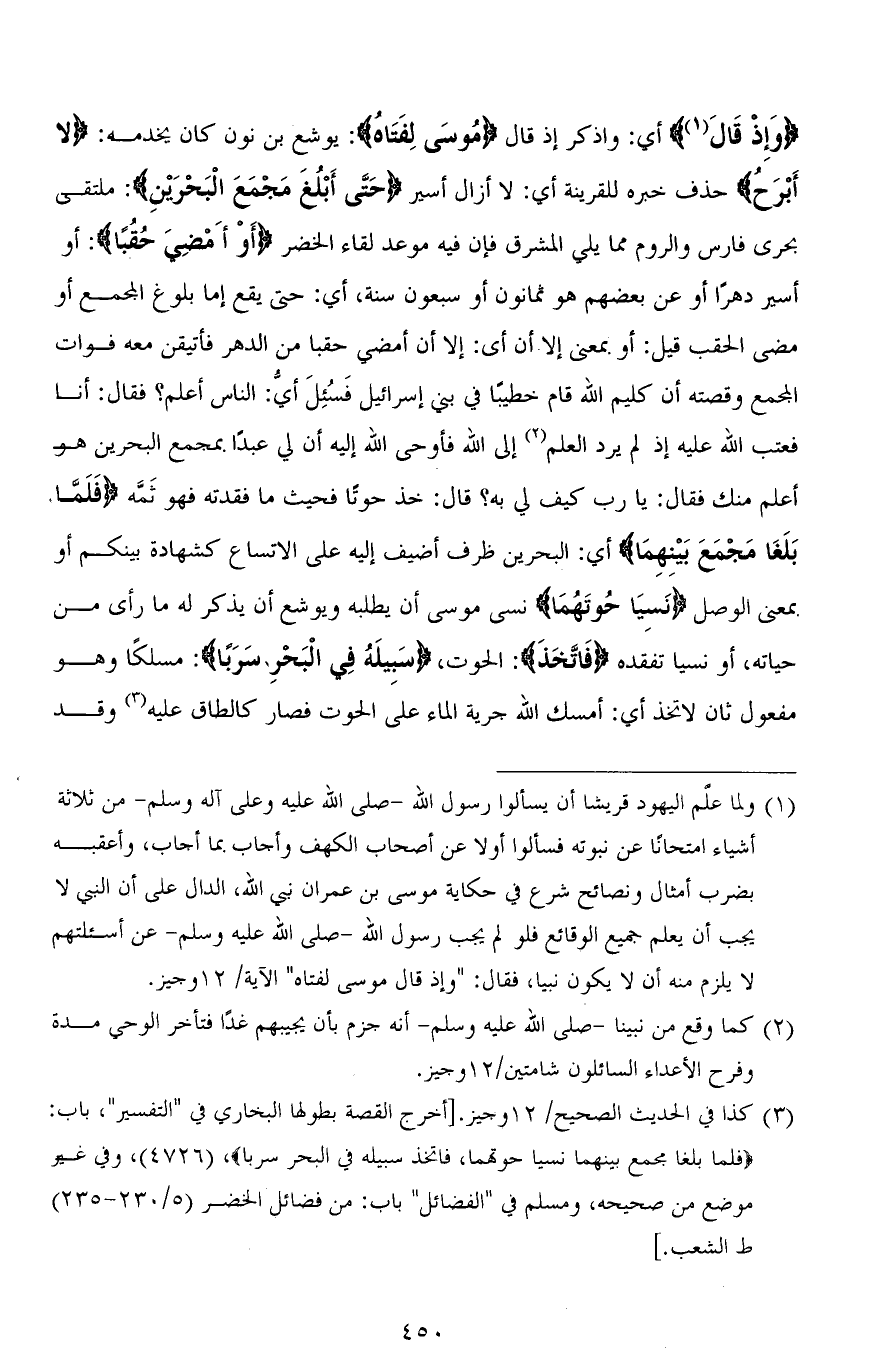 ﴿وَإِذْ قَالَ(١)﴾ أي: واذكر إذ قال ﴿مُوسَى لِفَتَاهُ﴾: يوشع بن نون كان يخدمــه: ﴿لا
أَبْرَحُ﴾ حذف خبره للقرينة أي: لا أزال أسير ﴿حَتَّى أَبْلُغَ مَجْمَعَ الْبَحْرَيْنِ﴾: ملتقــى
بحرى فارس والروم مما يلي المشرق فإن فيه موعد لقاء الخضر ﴿أَوْ أَمْضِيَ حُقُبًا﴾: أو
أسير دهرًا أو عن بعضهم هو ثمانون أو سبعون سنة، أي: حتى يقع إما بلوغ المجمــع أو
مضى الحقب قيل: أو بمعنى إلا أن أى: إلا أن أمضي حقبا من الدهر فأتيقن معه فــوات
المجمع وقصته أن كليم الله قام خطيبًا في بني إسرائيل فَسُئِلَ أيُّ: الناس أعلم؟ فقال: أنــا
فعتب الله عليه إذ لم يرد العلم(٢) إلى الله فأوحى الله إليه أن لي عبدًا بمجمع البحرين هــو
أعلم منك فقال: يا رب كيف لي به؟ قال: خذ حوتًا فحيث ما فقدته فهو ثَمَّه ﴿فَلَمَّا
بَلَغَا مَجْمَعَ بَيْنِهِمَا﴾ أي: البحرين ظرف أضيف إليه على الاتساع كشهادة بينكــم أو
بمعنى الوصل ﴿نَسِيَا حُوتَهُمَا﴾ نسى موسى أن يطلبه ويوشع أن يذكر له ما رأى مــن
حياته، أو نسيا تفقده ﴿فَاتَّخَذَ﴾: الحوت، ﴿سَبِيلَهُ فِي الْبَحْرِ سَرَبًا﴾: مسلكًا وهــو
مفعول ثان لاتخذ أي: أمسك الله جرية الماء على الحوت فصار كالطاق عليه(٣) وقــد
(١) ولما علّم اليهود قريشا أن يسألوا رسول الله -صلى الله عليه وعلى آله وسلم- من ثلاثة
أشياء امتحانًا عن نبوته فسألوا أولا عن أصحاب الكهف وأجاب بما أجاب، وأعقبــه
بضرب أمثال ونصائح شرع في حكاية موسى بن عمران نبي الله، الدال على أن النبي لا
يجب أن يعلم جميع الوقائع فلو لم يجب رسول الله -صلى الله عليه وسلم- عن أسئلتهم
لا يلزم منه أن لا يكون نبيا، فقال: "وإذ قال موسى لفتاه" الآية/ ١٢وجيز.
(٢) كما وقع من نبينا -صلى الله عليه وسلم- أنه جزم بأن يجيبهم غدًا فتأخر الوحي مــدة
وفرح الأعداء السائلون شامتين/١٢وجيز.
(٣) كذا في الحديث الصحيح/ ١٢وجيز.[أخرج القصة بطولها البخاري في "التفسير"، باب:
﴿فلما بلغا مجمع بينهما نسيا حوتهما، فاتخذ سبيله في البحر سربا﴾، (٤٧٢٦)، وفي غــير
موضع من صحيحه، ومسلم في "الفضائل" باب: من فضائل الخضــر (٢٣٠/٥-٢٣٥)
ط الشعب.]
٤٥٠